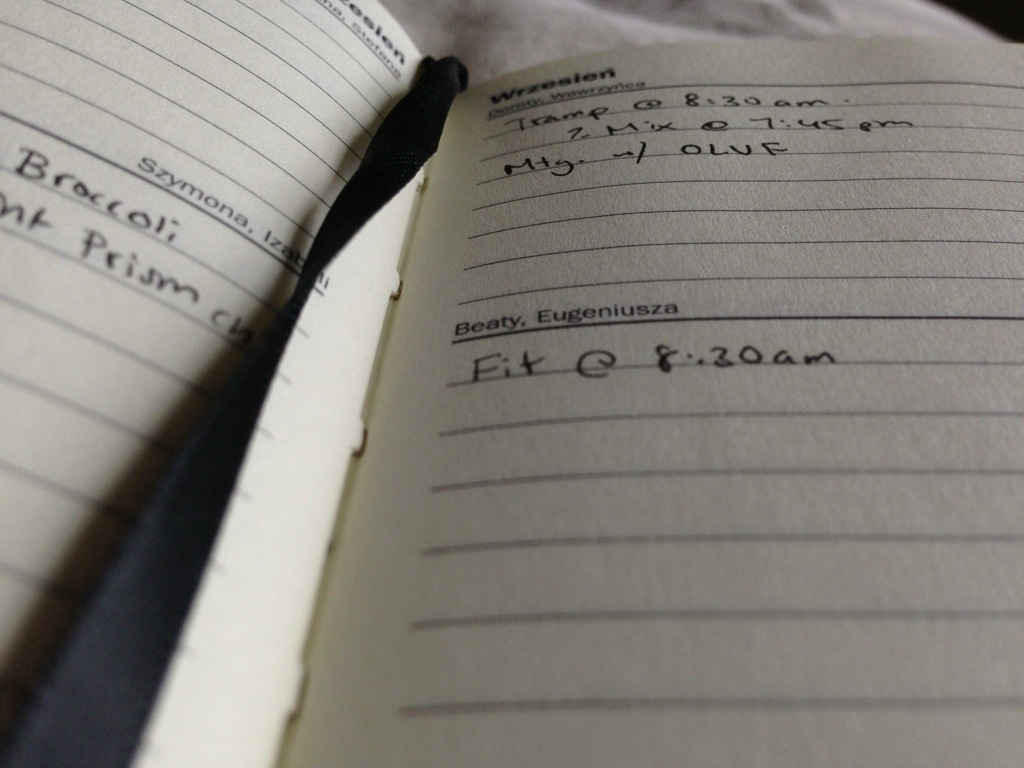 Szymona, Iza
Broccoli
Prism ch
Wrzesień
Doroty, Wawrzyńca
Tramp @ 8:30 am.
2 Mix @ 7:45 pm
Mtg. w/ OLVE
Beaty, Eugeniusza
Fit @ 8:30am